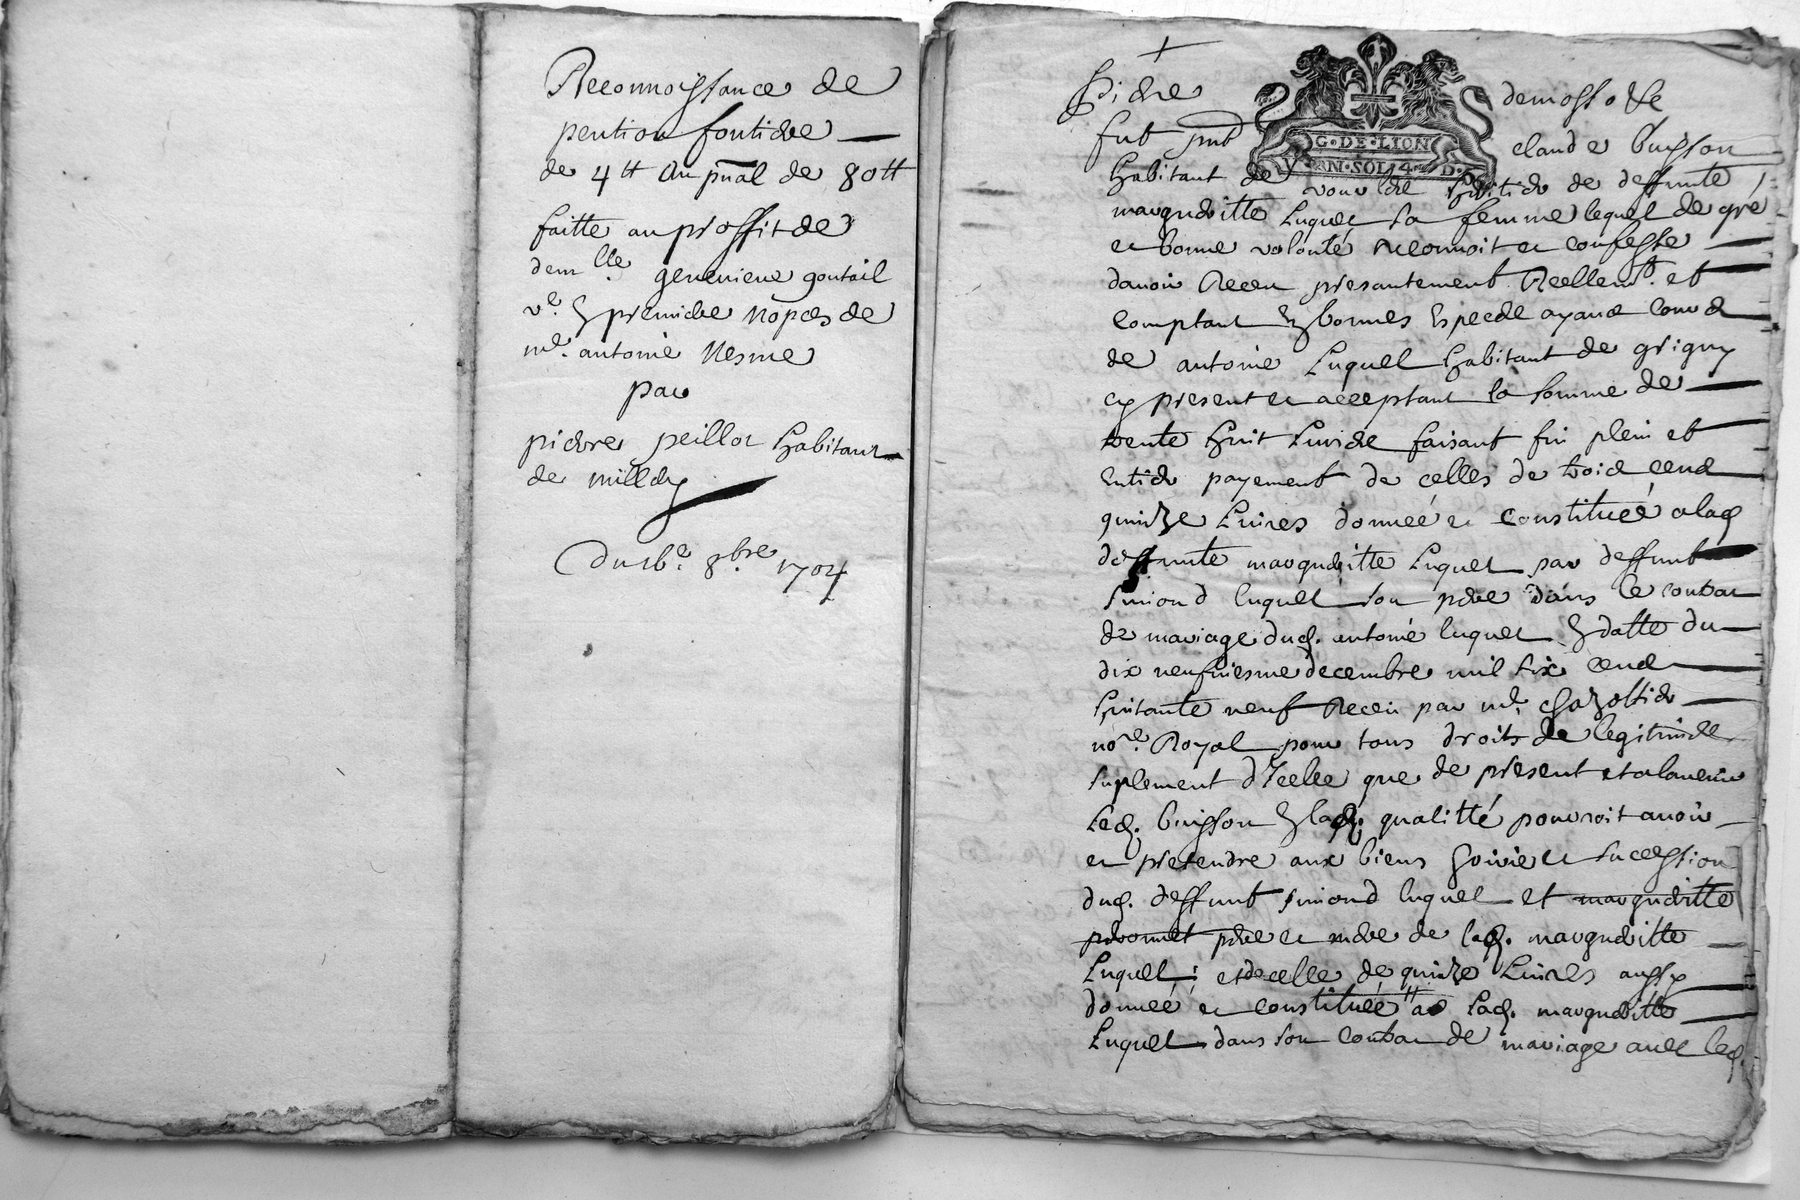 Reconnoissance de
pention fontiere
de 4 tt au pnal de 80 tt
faitte au proffit de
demlle genevieve
ve En premiere Nopces de
me antoine Nesme
par
pierre peillot habitant
de millery
Du 16e 8bre 1704
demoselle
fut pnt claude buisson
G·DE·LION
habitant de heritier de deffunte
margueritte Luquet sa femme lequel de gré
et bonne volonté reconnoit et confesse
davoir Receu presantement Reellemt et
Comptant En bonnes Espece ayant cours
de antoine Luquet habitant de grigny
cy present et acceptant la somme de
trente huit Livre faisant fin plein et
Entier payement de celles de trois cent
quinze Livres donneé et constitueé a lad.
deffunte margueritte Luquet par deffunt
simond luquet son pere dans le contrat
de mariage dud. antoine luquet En datte du
dix neufviesme decembre mil six cent
huitante neuf Receu par me
nore Royal pour tous droits de legitime
suplement dIcelle que de present et alavenir
Led. buisson En lad. qualitté pouvroit avoir
et pretendre aux biens hoirie et succession
dud. deffunt simond luquet et margueritte
pere et mere de lad. margueritte
Luquet : et de celle de quinze Livres aussy
donneé et constitueé a Lad. margueritte
Luquet dans son contrat de mariage avec led.